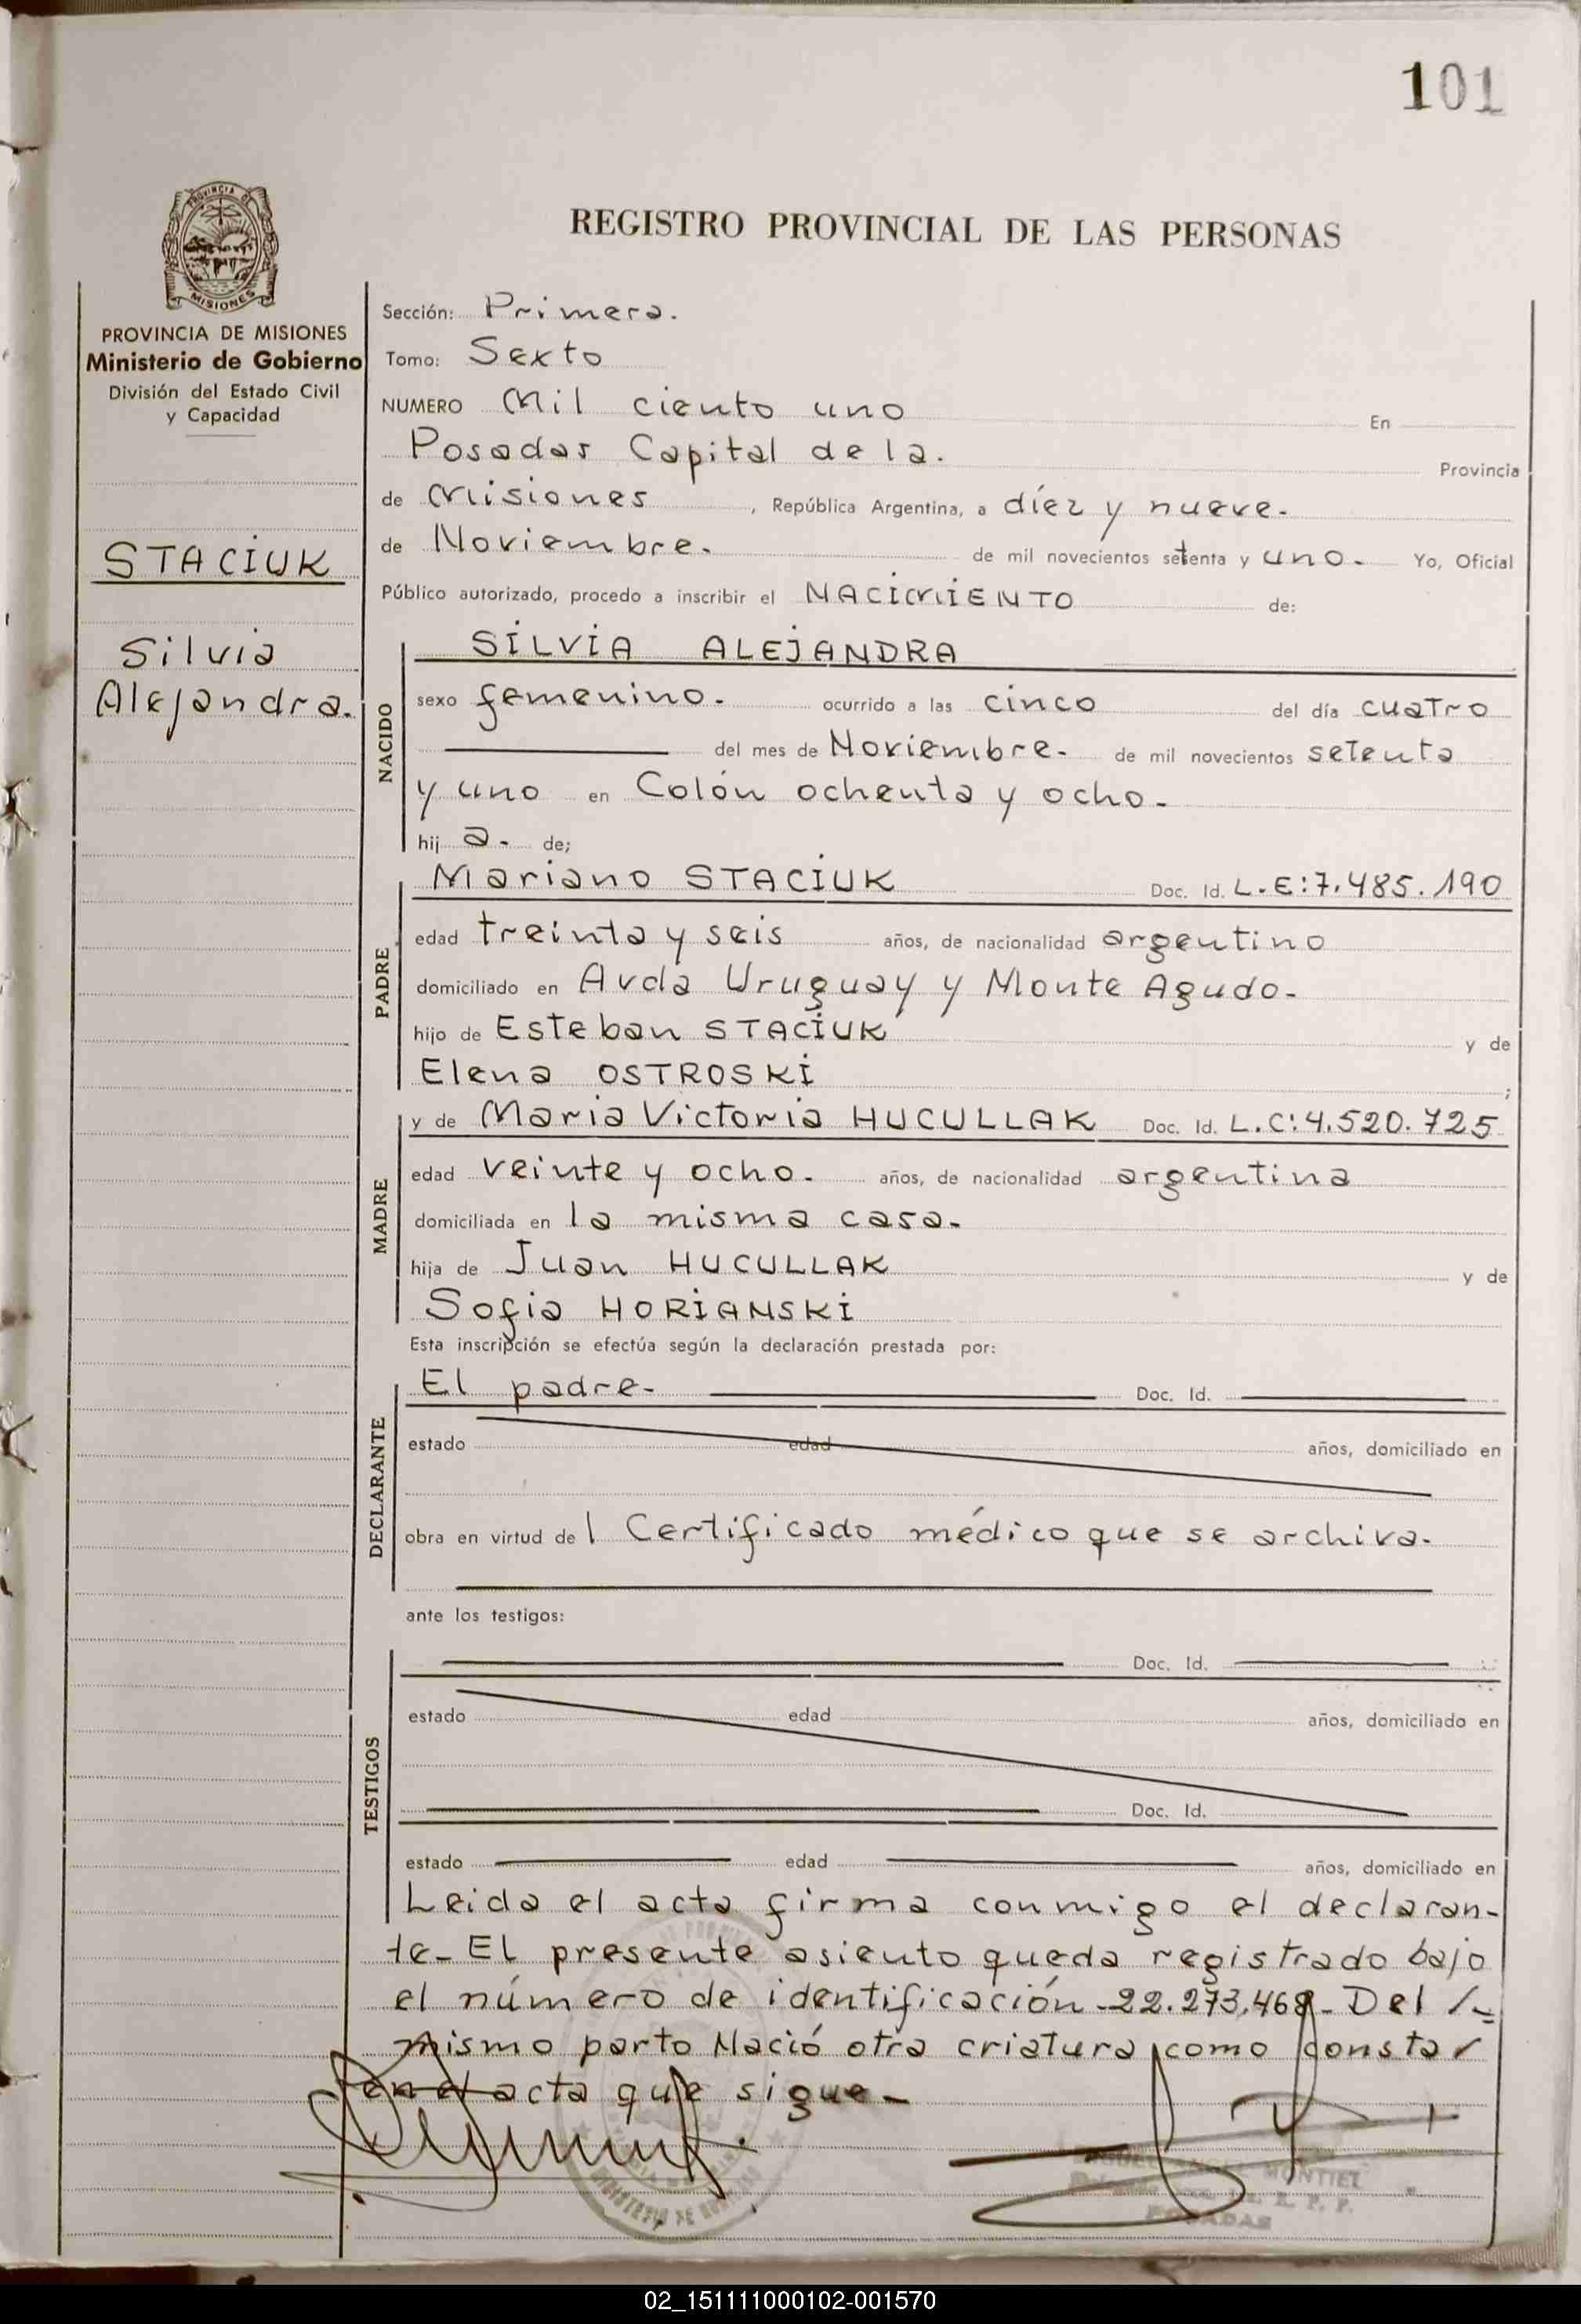 101
PROVINCIA DE
MISIONES
REGISTRO PROVINCIAL DE LAS PERSONAS
PROVINCIA DE MISIONES
Ministerio de Gobierno
División del Estado Civil
y Capacidad
STACIUK
Silvia
Alejandra.
Sección: Primera.
Tomo: Sexto
NUMERO Mil ciento uno En
Posadas Capital de la. Provincia
de Misiones, República Argentina, a diez y nueve.
de Noviembre. de mil novecientos setenta y uno. Yo, Oficial
Público autorizado, procedo a inscribir el NACIMIENTO de:
NACIDO
SILVIA ALEJANDRA
sexo femenino. ocurrido a las cinco del día cuatro
del mes de Noviembre. de mil novecientos setenta
y uno en Colón ochenta y ocho.
hij a. de;
PADRE
Mariano STACIUK Doc. Id. L.E:7.485.190
edad treinta y seis años, de nacionalidad argentino
domiciliado en Avda Uruguay y Monte Agudo.
hijo de Esteban STACIUK y de
Elena OSTROSKI ;
MADRE
y de Maria Victoria HUCULLAK Doc. Id. L.C:4.520.725
edad veinte y ocho. años, de nacionalidad argentina
domiciliada en la misma casa.
hija de Juan HUCULLAK y de
Sofia HORIANSKI
Esta inscripción se efectúa según la declaración prestada por:
DECLARANTE
El padre. Doc. Id.
estado edad años, domiciliado en
obra en virtud de l Certificado médico que se archiva.
ante los testigos:
TESTIGOS
Doc. Id.
estado edad años, domiciliado en
Doc. Id.
estado edad años, domiciliado en
Leida el acta firma conmigo el declaran-
te- El presente asiento queda registrado bajo
el número de identificación 22.273.468- Del
mismo parto Nació otra criatura como consta
en el acta que sigue-
MONTIEL
POSADAS
02_151111000102-001570